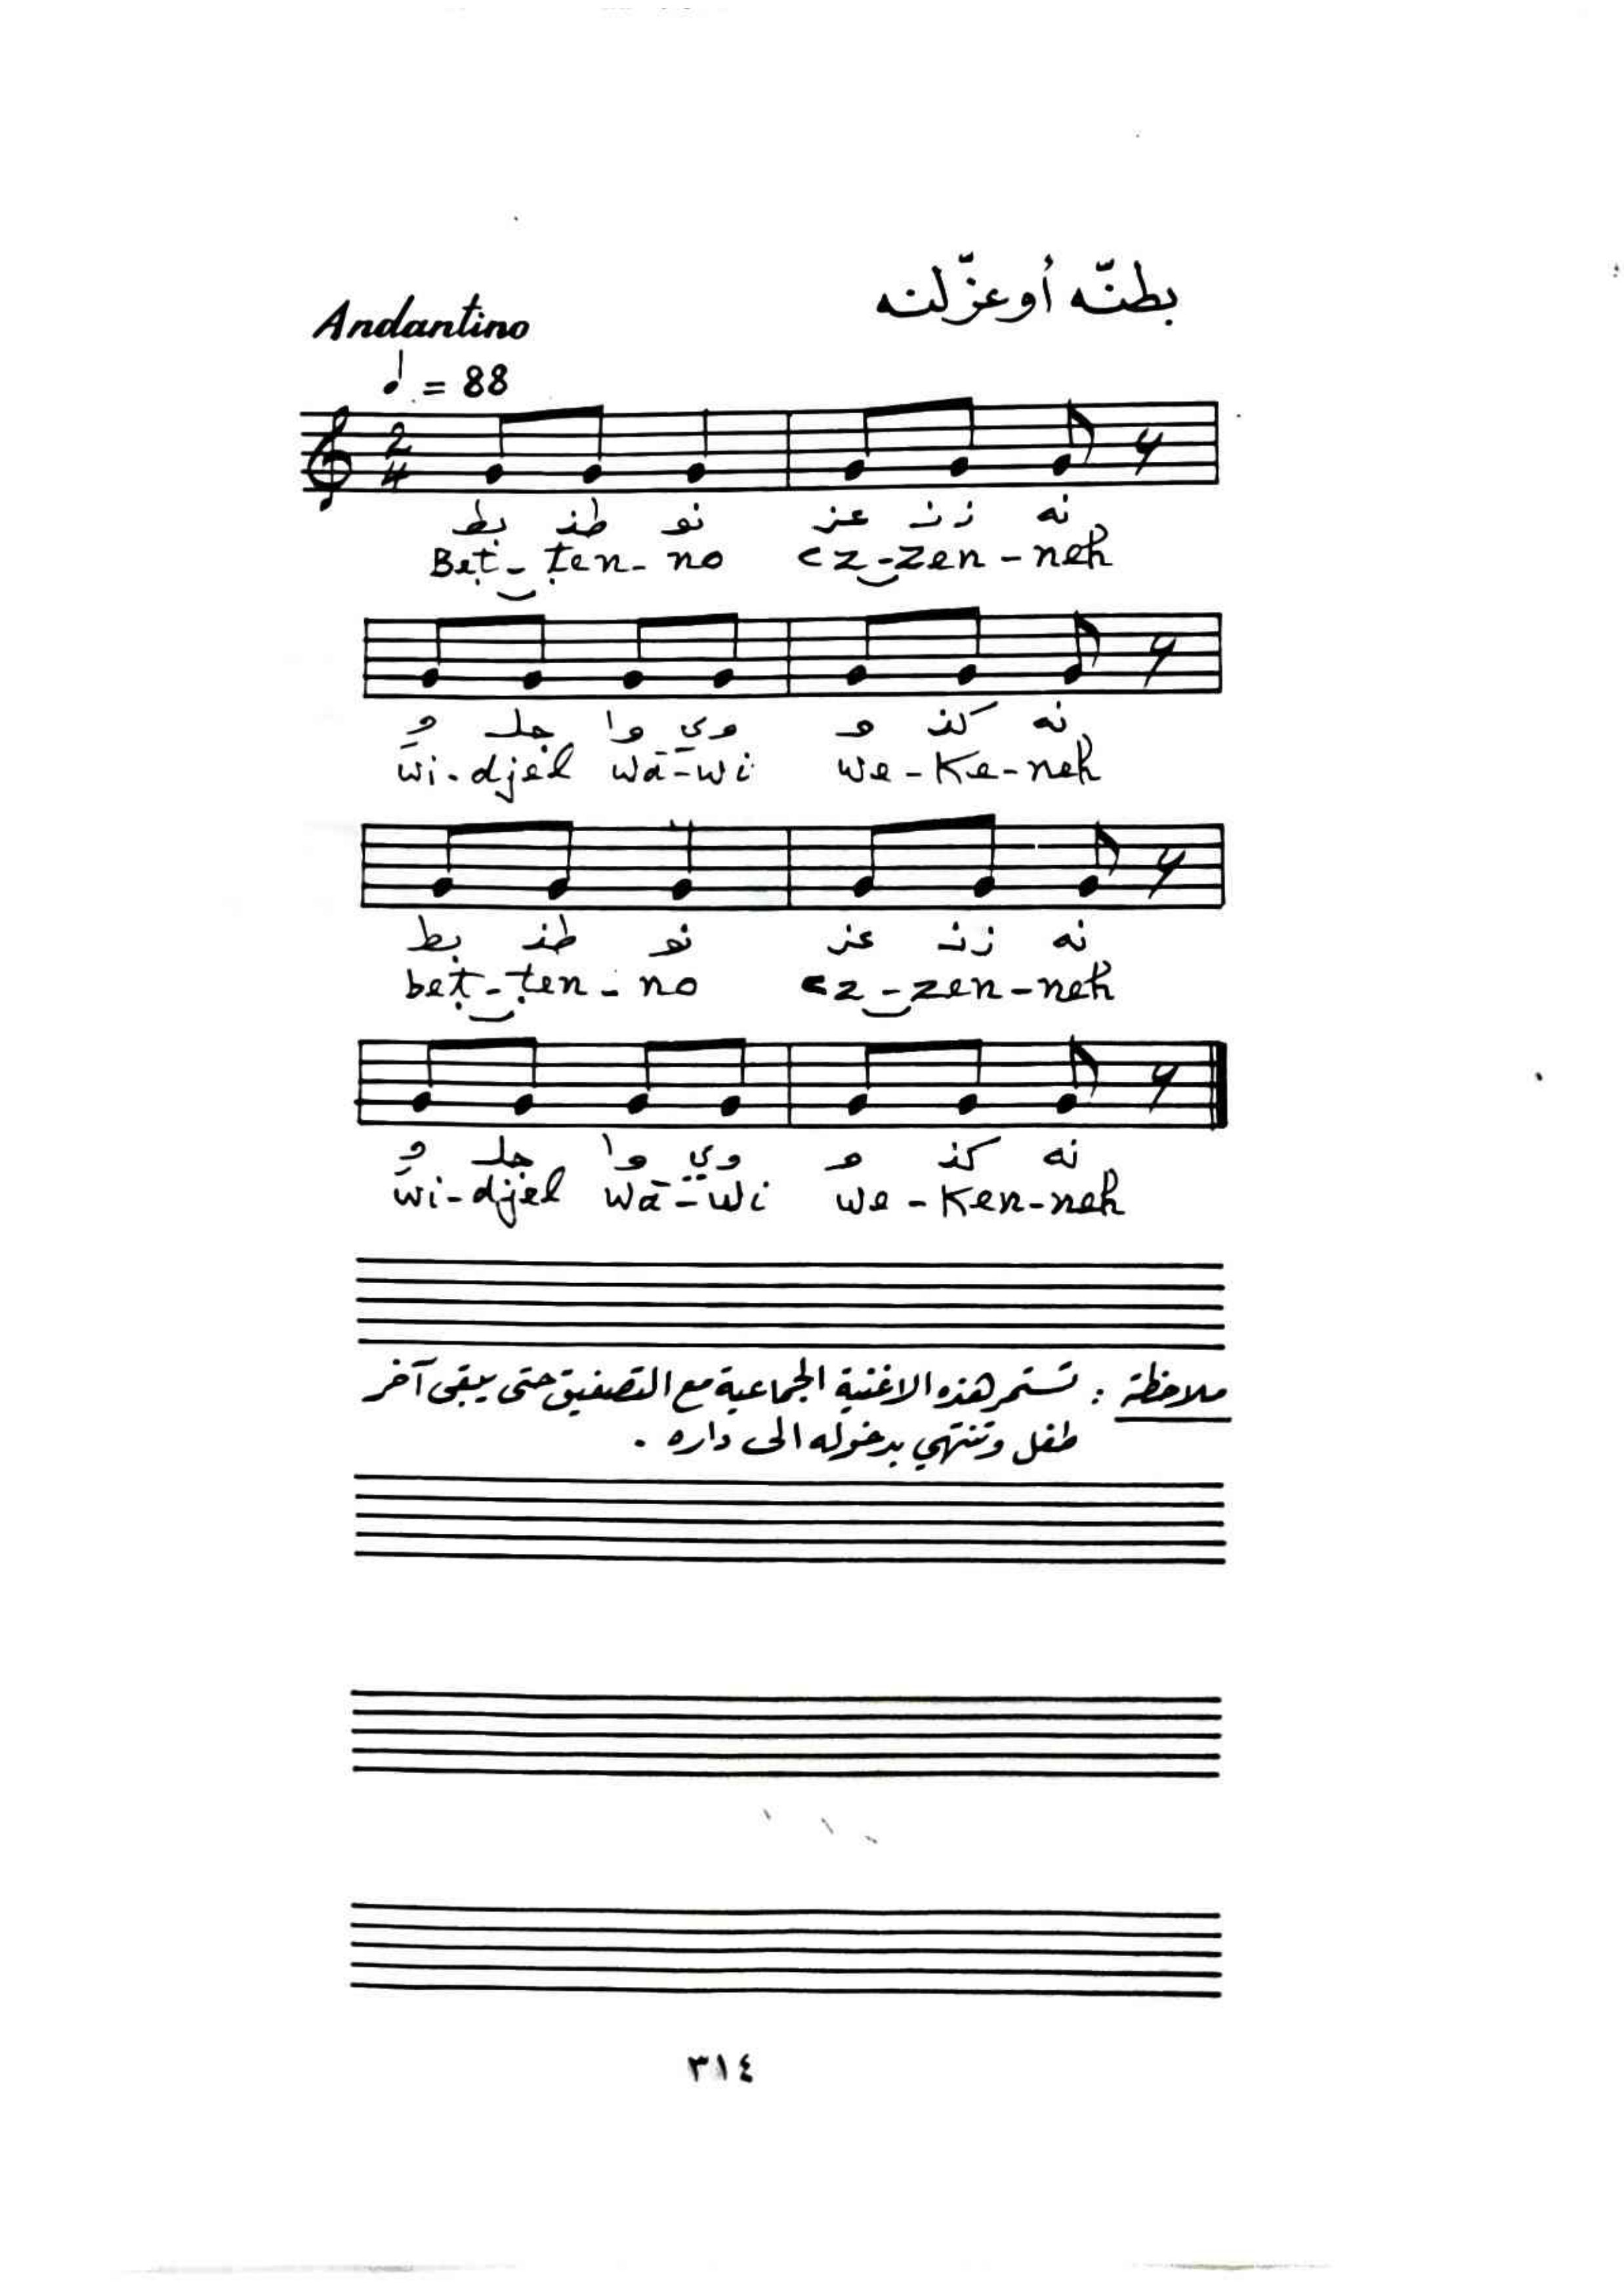 بطنّه أو عزّلنه
Andantino
♩ = 88
2/4
بط طنـ نو عز زنـ نه
Beṭ-ṭen-no cz-zen-neh
وِ جلـ وا وي و كنـ نه
wi-djel wā-wi we-Ke-neh
بط طنـ نو عز زنـ نه
beṭ-ṭen-no cz-zen-neh
وِ جلـ وا وي و كنـ نه
wi-djel wā-wi we-Ken-neh
ملاحظة : تستمر هذه الاغنية الجماعية مع التصفيق حتى يبقى آخر
طفل وتنتهي بدخوله الى داره .
٣١٤